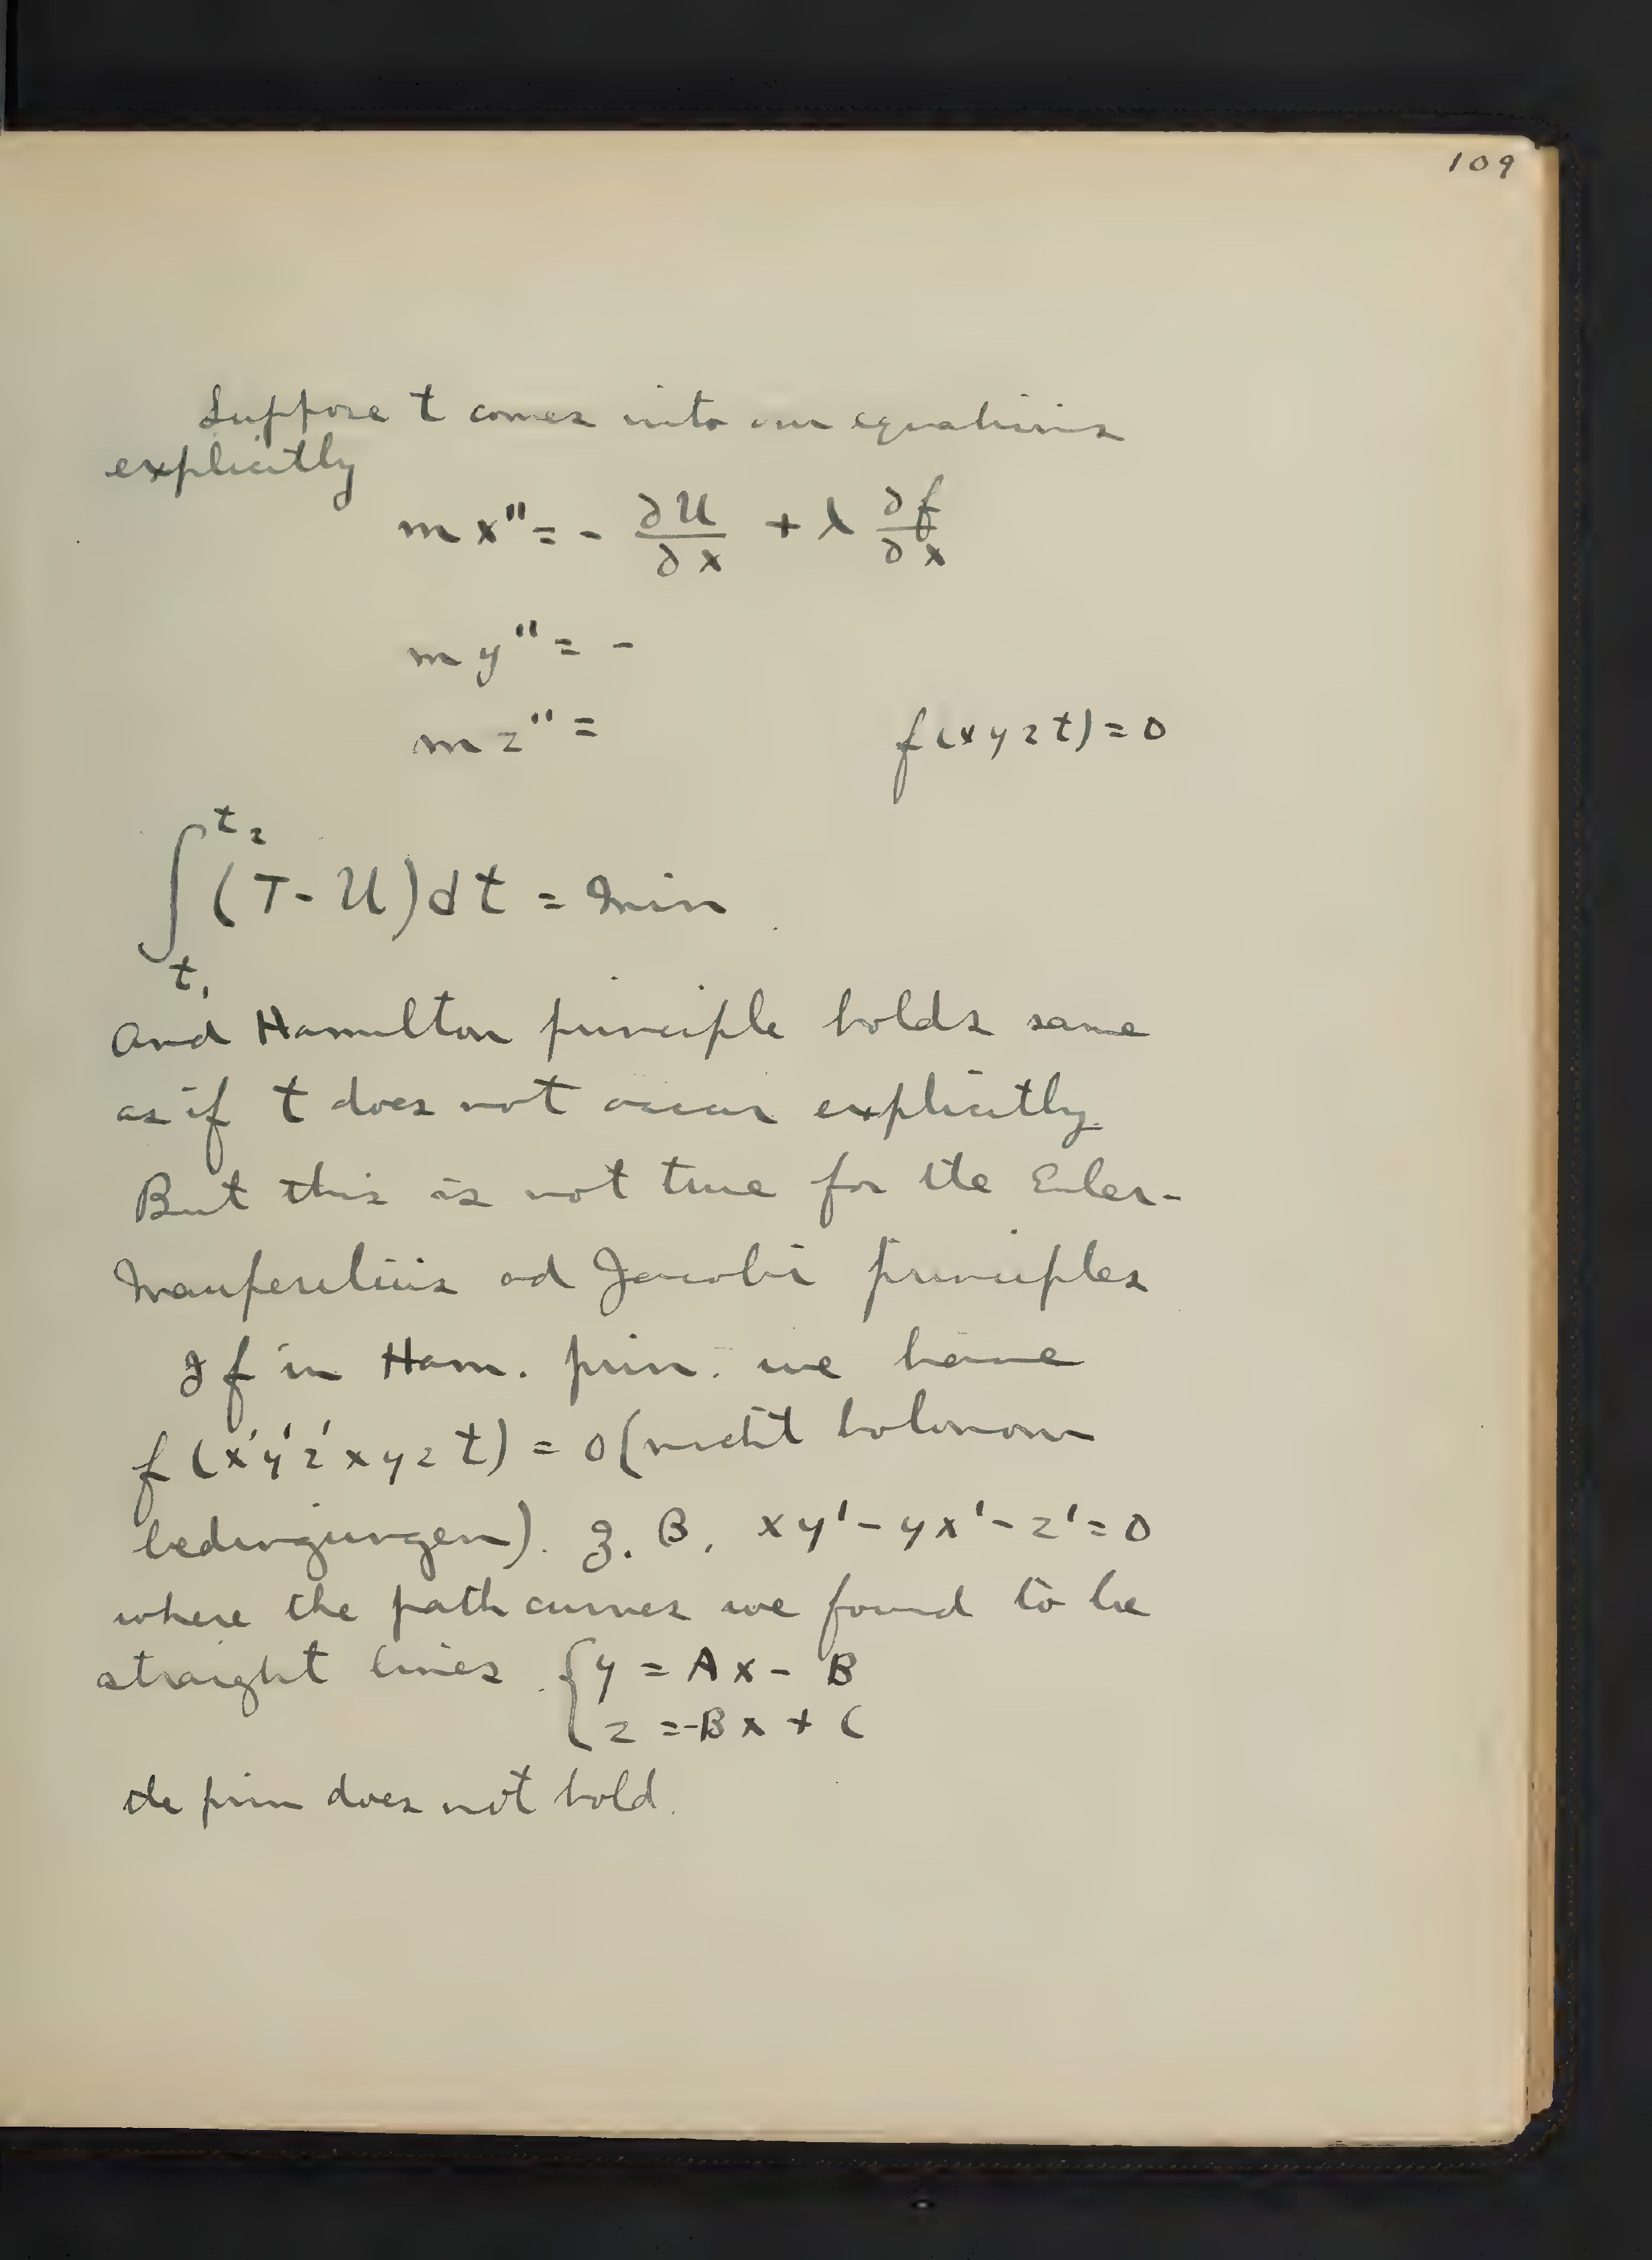 109
Suppose t comes into our equations
explicitly
m x" = - ∂U/∂x + λ ∂f/∂x
m y" = -
m z" =
f(x y z t) = 0
∫_{t₁}^{t₂} (T - U) dt = Min
And Hamilton principle holds same
as if t does not occur explicitly.
But this is not true for the Euler-
Maupertius ad Jacobi principles
If in Ham. prin. we have
f (x' y' z' x y z t) = 0 (nicht holonom
bedingungen). z. B. x y' - y x' - z' = 0
where the path curves we found to be
straight lines { y = A x - B
z = -B x + C
the prin does not hold.